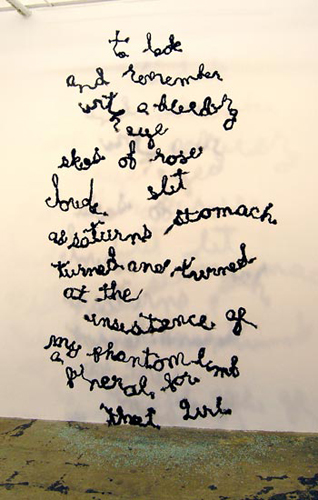 to look
and remember
with a bleeding
eye
of rose
cloud, slit
as saturns stomach
turned and turned
at the
insistence of
my phantom limb
a funeral, for
that girl